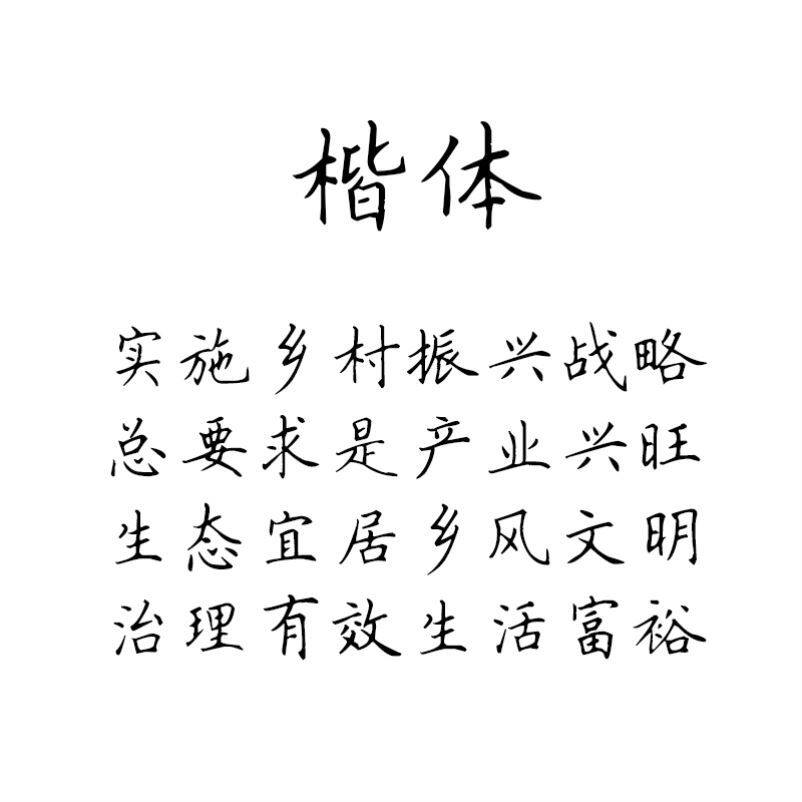 楷体
实施乡村振兴战略
总要求是产业兴旺
生态宜居乡风文明
治理有效生活富裕